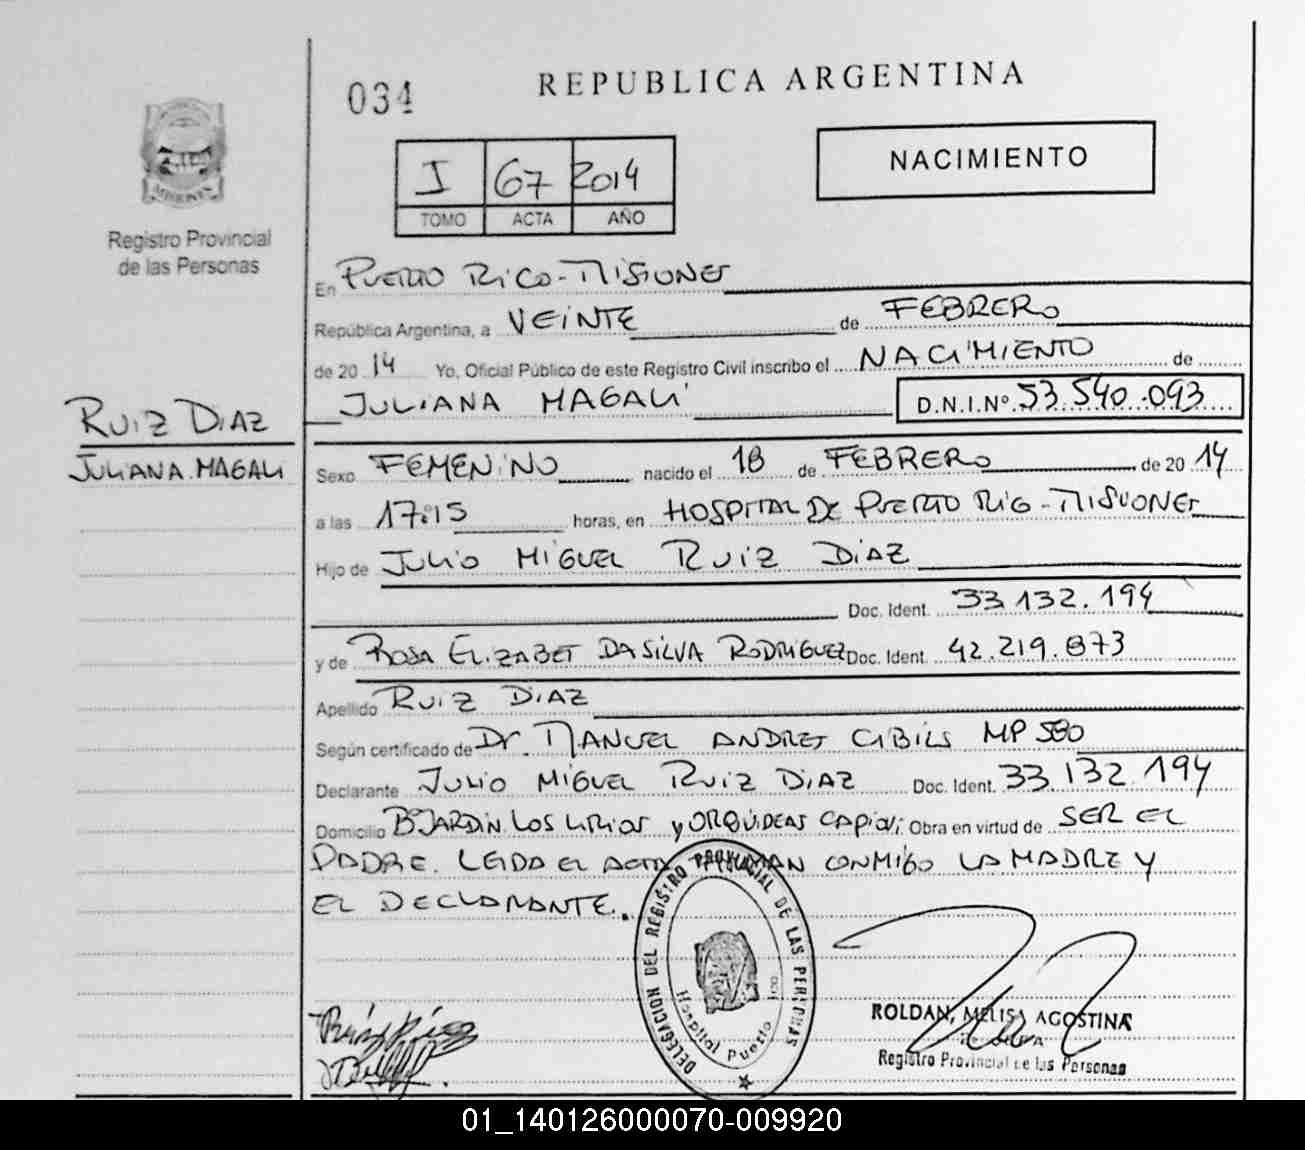 034
REPUBLICA ARGENTINA
NACIMIENTO
I 67 2014
TOMO ACTA AÑO
MISIONES
Registro Provincial
de las Personas
En PUERTO RICO - MISIONES
República Argentina, a VEINTE de FEBRERO
de 20 14 Yo, Oficial Público de este Registro Civil inscribo el NACIMIENTO de
JULIANA MAGALI D.N.I.Nº 53.540.093
RUIZ DIAZ
JULIANA MAGALI
Sexo FEMENINO nacido el 18 de FEBRERO de 20 14
a las 17:15 horas, en HOSPITAL DE PUERTO RICO - MISIONES
Hijo de JULIO MIGUEL RUIZ DIAZ
Doc. Ident. 33.132.194
y de ROSA ELIZABET DA SILVA RODRIGUEZ Doc. Ident. 42.219.873
Apellido RUIZ DIAZ
Según certificado de Dr. MANUEL ANDRES CIBILS MP 580
Declarante JULIO MIGUEL RUIZ DIAZ Doc. Ident. 33 132 194
Domicilio Bº JARDIN LOS LIRIOS y ORQUIDEAS CAPIOVI Obra en virtud de SER EL
PADRE. LEIDA EL ACTA FIRMAN CONMIGO LA MADRE Y
EL DECLARANTE.
DELEGACION DEL REGISTRO PROVINCIAL DE LAS PERSONAS
Hospital Puerto Rico
ROLDAN, MELISA AGOSTINA
Registro Provincial de las Personas
01_140126000070-009920